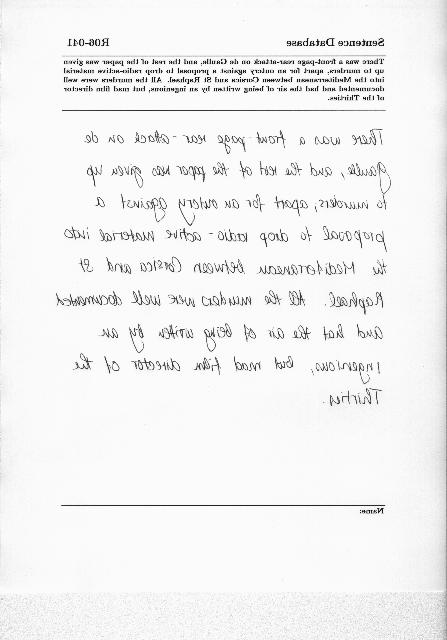 Sentence Database R06-041
There was a front-page rear-attack on de Gaulle, and the rest of the paper was given
up to murders, apart for an outcry against a proposal to drop radio-active material
into the Mediterranean between Corsica and St Raphael. All the murders were well
documented and had the air of being written by an ingenious, but mad film director
of the Thirties.
There was a front-page rear-attack on de
Gaulle, and the rest of the paper was given up
to murders, apart for an outcry against a
proposal to drop radio-active material into
the Mediterranean between Corsica and St
Raphael. All the murders were well documented
and hat the air of being written by an
ingenious, but mad film director of the
Thirties.
Name: